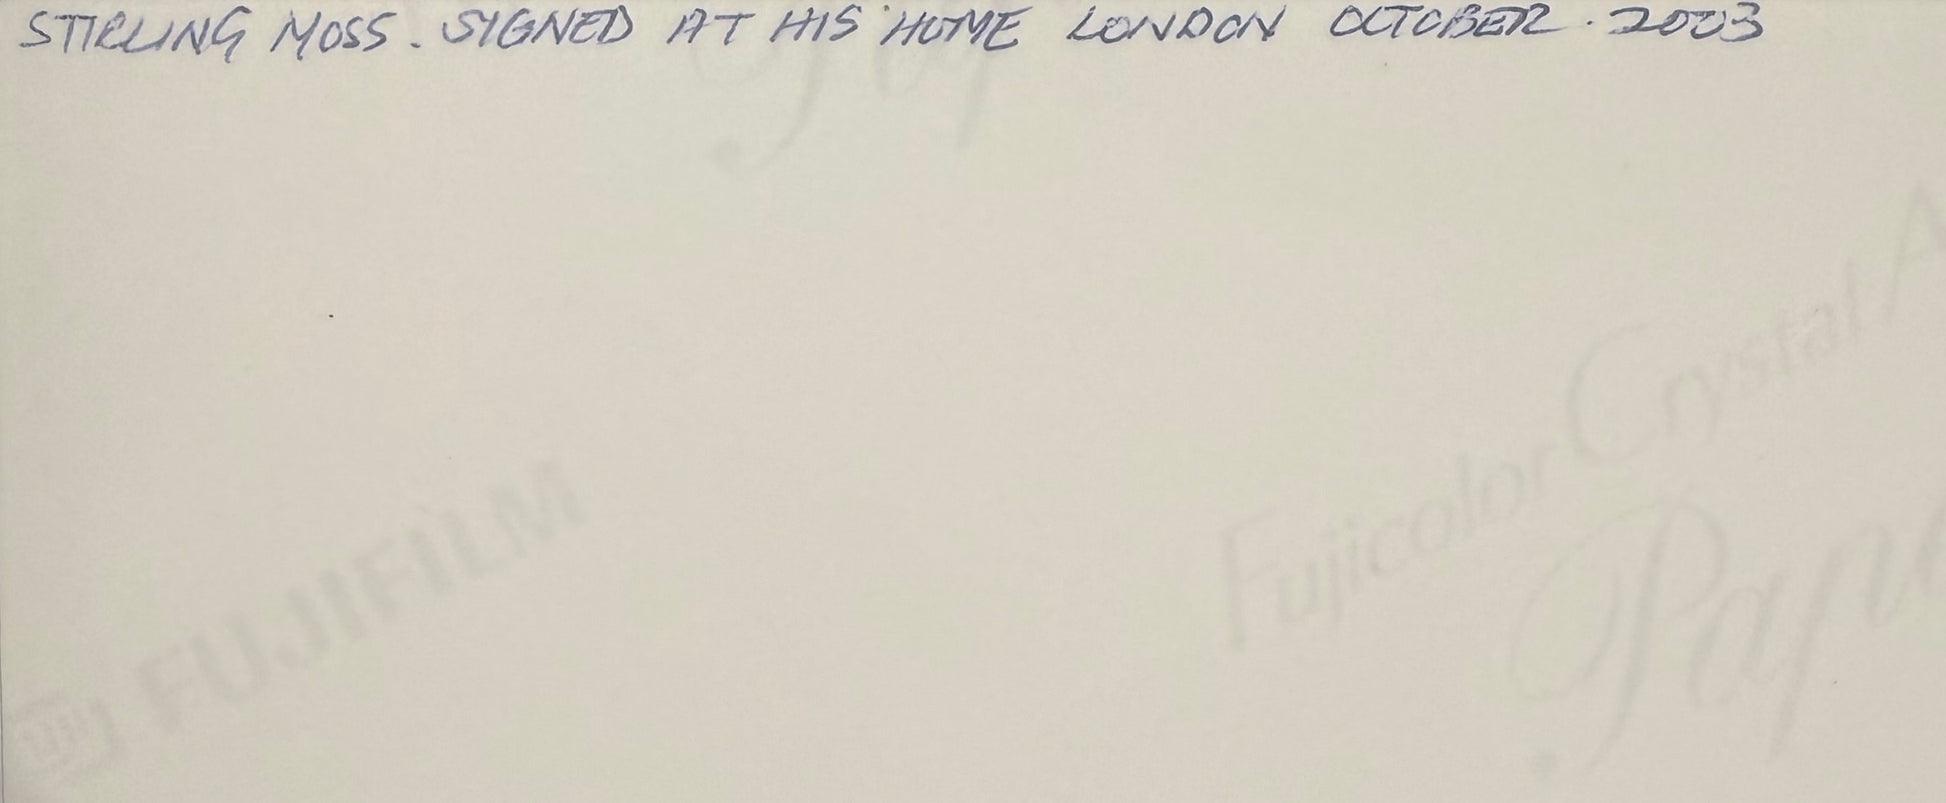 STIRLING MOSS. SIGNED AT HIS HOME LONDON OCTOBER. 2003
Fujicolor Crystal A
Pap
FUJIFILM